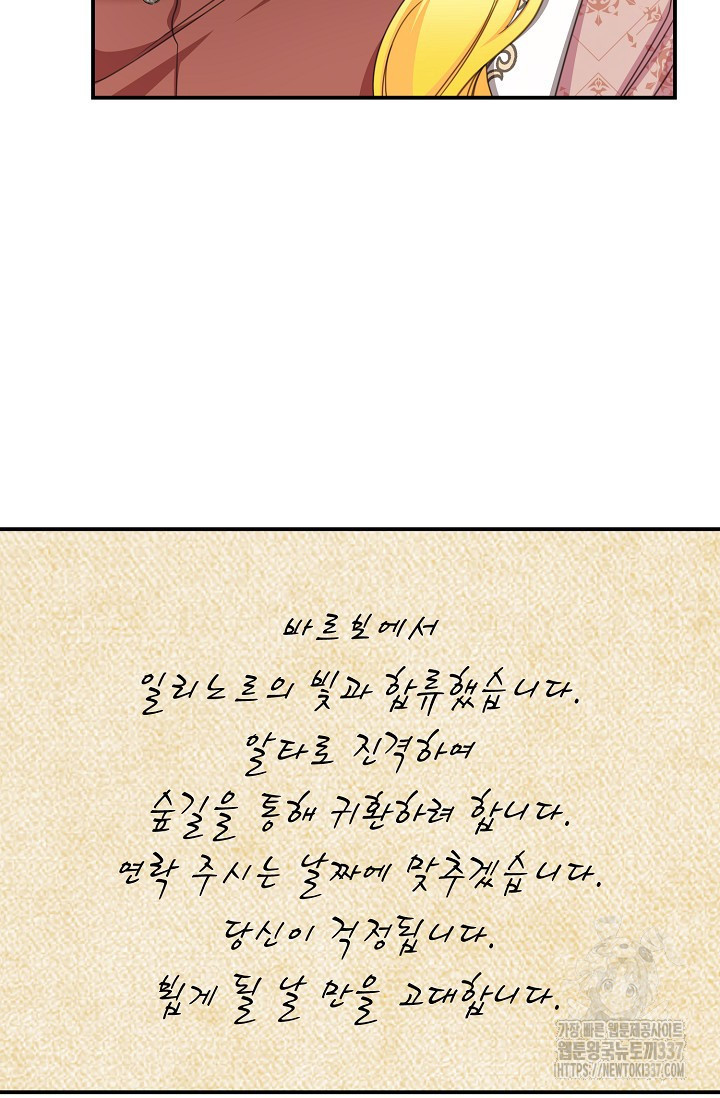 바르힐에서
일리노르의 빛과 합류했습니다.
알타로 진격하여
숲길을 통해 귀환하려 합니다.
연락 주시는 날짜에 맞추겠습니다.
당신이 걱정됩니다.
뵙게 될 날 만을 고대합니다.
가장 빠른 웹툰제공사이트
웹툰왕국뉴토끼337
HTTPS://NEWTOKI337.COM